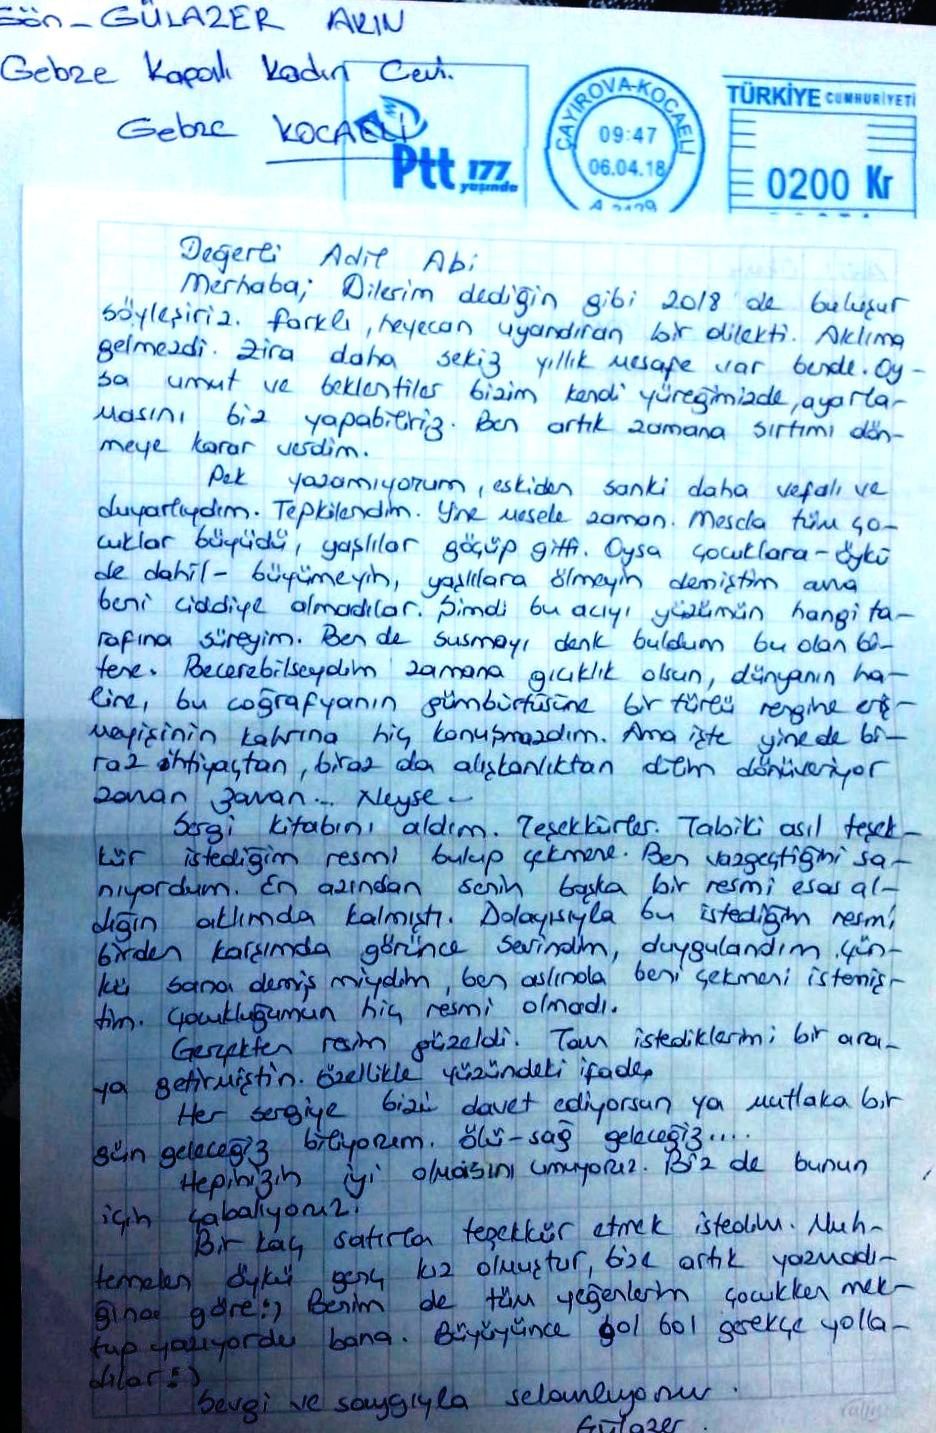 Gön-GÜLAZER AKIN
Gebze Kapalı Kadın Cevi.
Gebze KOCAELİ
Ptt 177
yaşında
ÇAYIROVA-KOCAELİ
09:47
06.04.18
TÜRKİYE CUMHURİYETİ
0200 Kr
Değerli Adil Abi
Merhaba; Dilerim dediğin gibi 2018 de buluşur
söyleşiriz. farklı, heyecan uyandıran bir dilekti. Aklıma
gelmezdi. Zira daha sekiz yıllık mesafe var bende. Oy-
sa umut ve beklentiler bizim kendi yüreğimizde, ayarla-
masını biz yapabiliriz. Ben artık zamana sırtımı dön-
meye karar verdim.
Pek yazamıyorum, eskiden sanki daha vefalı ve
duyarlıydım. Tepkilendim. Yine mesele zaman. Mesela tüm ço-
cuklar büyüdü, yaşlılar göçüp gitti. Oysa çocuklara-öykü
de dahil- büyümeyin, yaşlılara ölmeyin demiştim ama
beni ciddiye almadılar. Şimdi bu acıyı yüzümün hangi ta-
rafına süreyim. Ben de susmayı denk buldum bu olan bi-
tene. Becerebilseydim zamana gıcıklık olsun, dünyanın ha-
line, bu coğrafyanın gümbürtüsüne bir türlü rengine eriş-
meyişinin kahrına hiç konuşmazdım. Ama işte yinede bi-
raz ihtiyaçtan, biraz da alışkanlıktan dilim dönüveriyor
zaman zaman... Neyse-
Sergi kitabını aldım. Teşekkürler. Tabiki asıl teşek-
kür istediğim resmi bulup çekmene. Ben vazgeçtiğini sa-
nıyordum. En azından senin başka bir resmi esas al-
dığın aklımda kalmıştı. Dolayısıyla bu istediğim resmi
birden karşımda görünce sevindim, duygulandım çün-
kü sana demiş miydim, ben aslında beni çekmeni istemiş-
tim. Çocukluğumun hiç resmi olmadı.
Gerçekten resim güzeldi. Tam istediklerimi bir ara-
ya getirmiştin. Özellikle yüzündeki ifade,
Her sergiye bizi davet ediyorsun ya mutlaka bir
gün geleceğiz biliyorum. Ölü-sağ geleceğiz....
Hepinizin iyi olmasını umuyoruz. Biz de bunun
için çabalıyoruz.
Bir kaç satırla teşekkür etmek istedim. Muh-
temelen öykü genç kız olmuştur, bize artık yazmadı-
ğına göre:) Benim de tüm yeğenlerim çocukken mek-
tup yazıyordu bana. Büyüyünce bol bol gerekçe yolla-
dılar:)
Sevgi ve saygıyla selamlıyorum.
Gülazer.